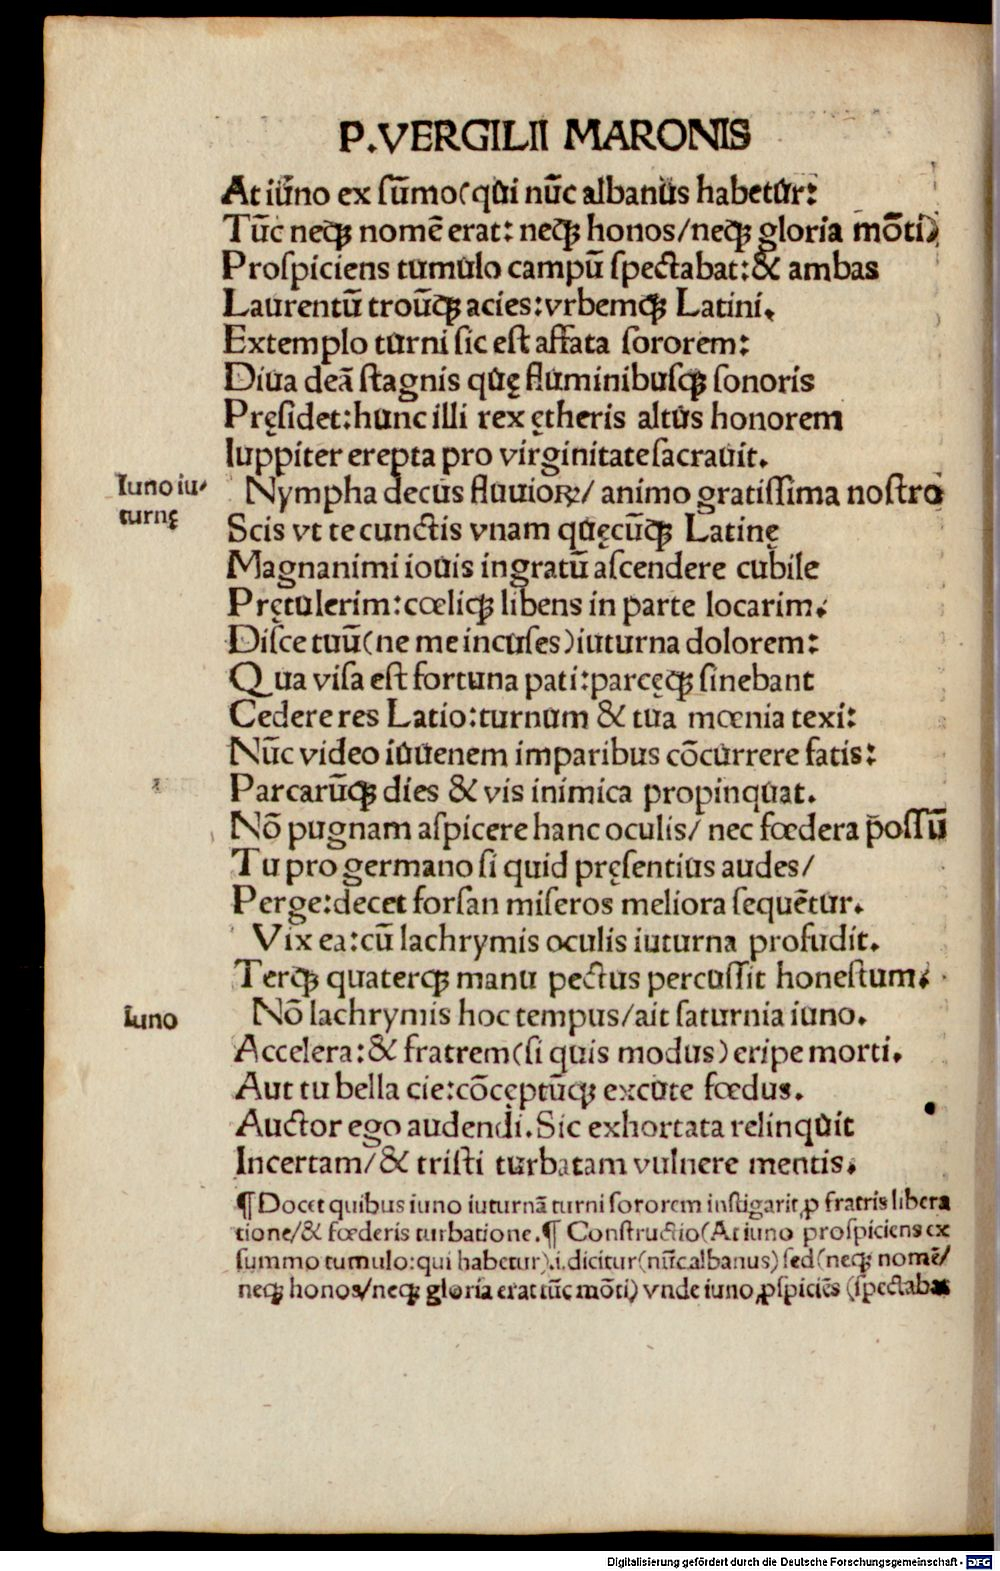 P.VERGILII MARONIS
At iūno ex ſūmo(qui nūc albanus habetur:
Tūc neqꝫ nomē erat: neqꝫ honos/neqꝫ gloria mōti)
Proſpiciens tumulo campū ſpectabat:& ambas
Laurentū troūqꝫ acies:vrbemqꝫ Latini.
Extemplo turni ſic eſt affata ſororem:
Diua deā ſtagnis quę fluminibuſqꝫ ſonoris
Pręſidet:hunc illi rex ętheris altus honorem
Iuppiter erepta pro virginitate ſacrauit.
Iuno iu-
turnę
Nympha decus fluuioꝝ/ animo gratiſſima noſtro
Scis vt te cunctis vnam quęcūqꝫ Latinę
Magnanimi iouis ingratū aſcendere cubile
Prętulerim:cœliqꝫ libens in parte locarim.
Diſce tuū(ne me incuſes)iuturna dolorem:
Qua viſa eſt fortuna pati:parcęqꝫ ſinebant
Cedere res Latio:turnum & tua mœnia texi:
Nūc video iuuenem imparibus cōcurrere fatis:
Parcarūqꝫ dies & vis inimica propinquat.
Nō pugnam aſpicere hanc oculis/ nec fœdera poſſū
Tu pro germano ſi quid pręſentius audes/
Perge:decet forſan miſeros meliora ſequētur.
Vix ea:cū lachrymis oculis iuturna profudit.
Terqꝫ quaterqꝫ manu pectus percuſſit honeſtum.
Iuno
Nō lachrymis hoc tempus/ait ſaturnia iuno.
Accelera:& fratrem(ſi quis modus)eripe morti.
Aut tu bella cie:cōcęptūqꝫ excute fœdus.
Auctor ego audendi.Sic exhortata relinquit
Incertam/& triſti turbatam vulnere mentis.
¶ Docet quibus iuno iuturnā turni ſororem inſtigarit ꝓ fratris libera
tione/& fœderis turbatione.¶ Conſtructio(At iuno proſpiciens ex
ſummo tumulo:qui habetur).i.dicitur(nūc albanus)ſed(neqꝫ nomē/
neqꝫ honos/neqꝫ gloria erat tūc mōti) vnde iuno ꝓſpiciēs (ſpectabat
Digitalisierung gefördert durch die Deutsche Forschungsgemeinschaft - DFG